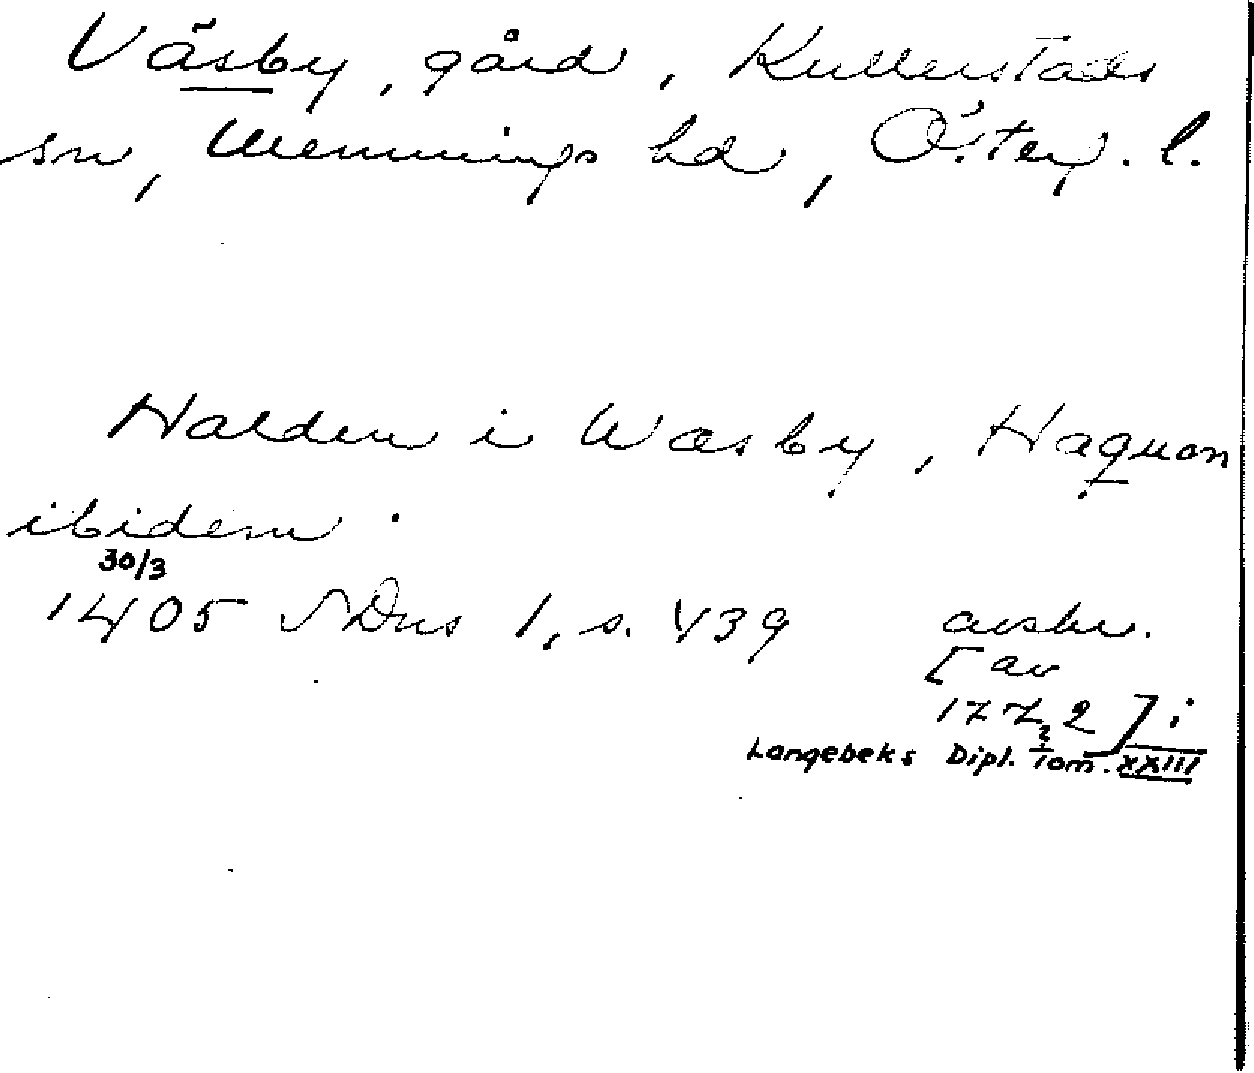 Väsby, gård, Kullerstads
sn, Memmings hd, Österg. l.
Halden i Wæsby, Haquon
ibidem.
30/3
1405 SDns 1, s. 439 avskr.
[av
1772] i
Langebeks Dipl. Tom. XXIII